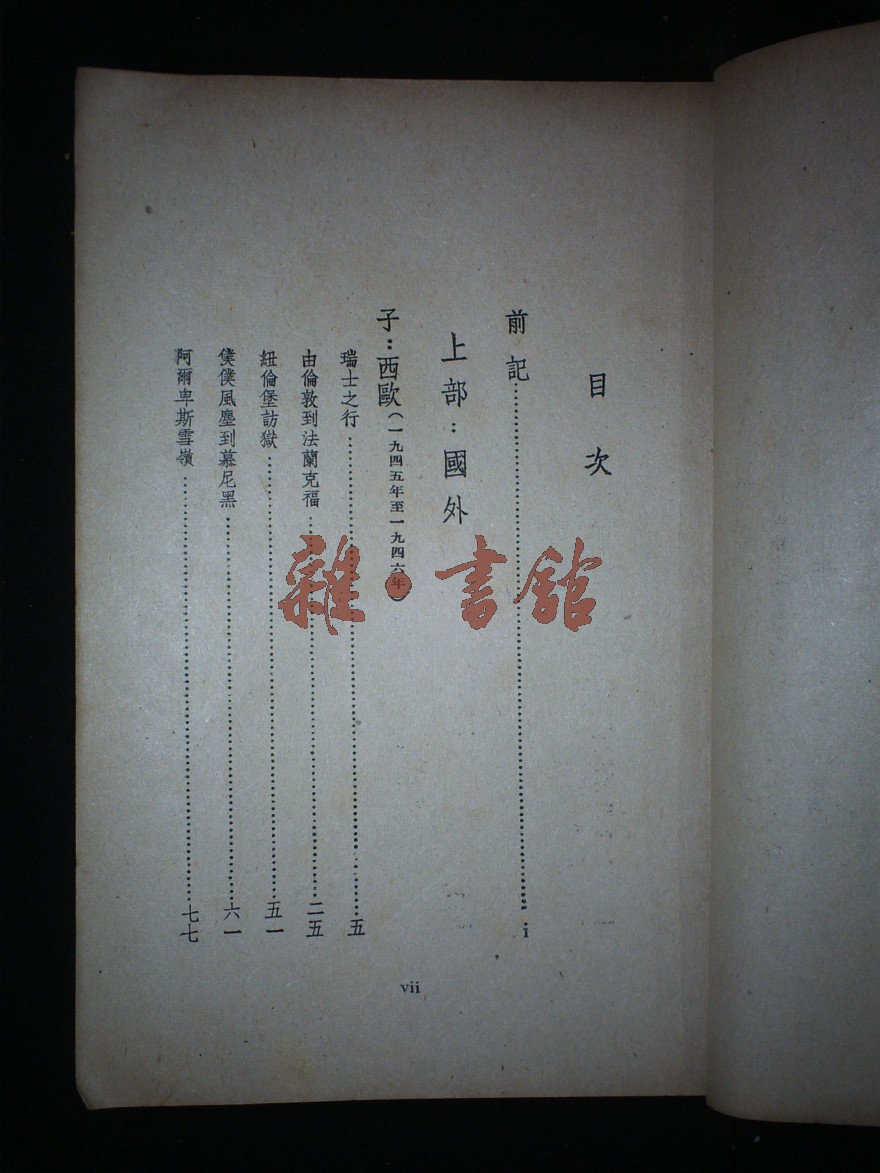 目次
前記 i
上部：國外
子：西歐（一九四五年至一九四六年）
瑞士之行 五
由倫敦到法蘭克福 二五
紐倫堡訪獄 五一
僕僕風塵到慕尼黑 六一
阿爾卑斯雪嶺 七七
vii
雜·書館